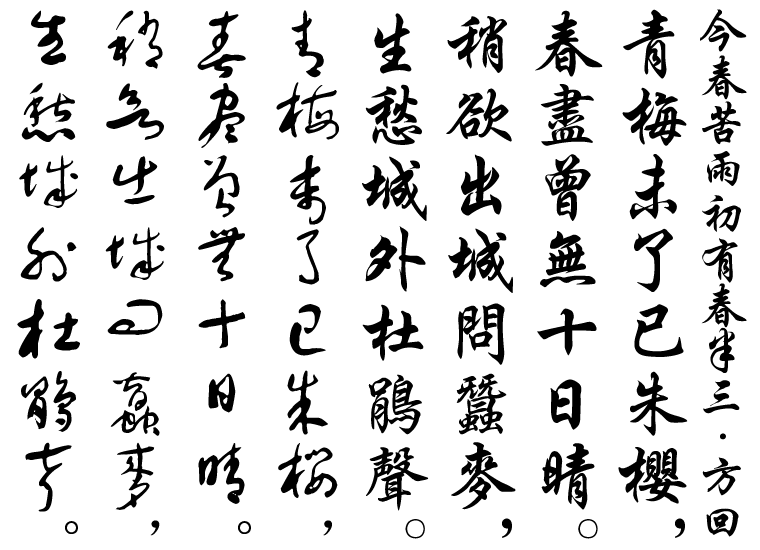 今春苦雨初有春半三·方回
青梅未了已朱櫻，
春盡曾無十日晴。
稍欲出城問蠶麥，
生愁城外杜鵑聲。
青梅未了已朱櫻，
春盡曾無十日晴。
稍欲出城問蠶麥，
生愁城外杜鵑聲。